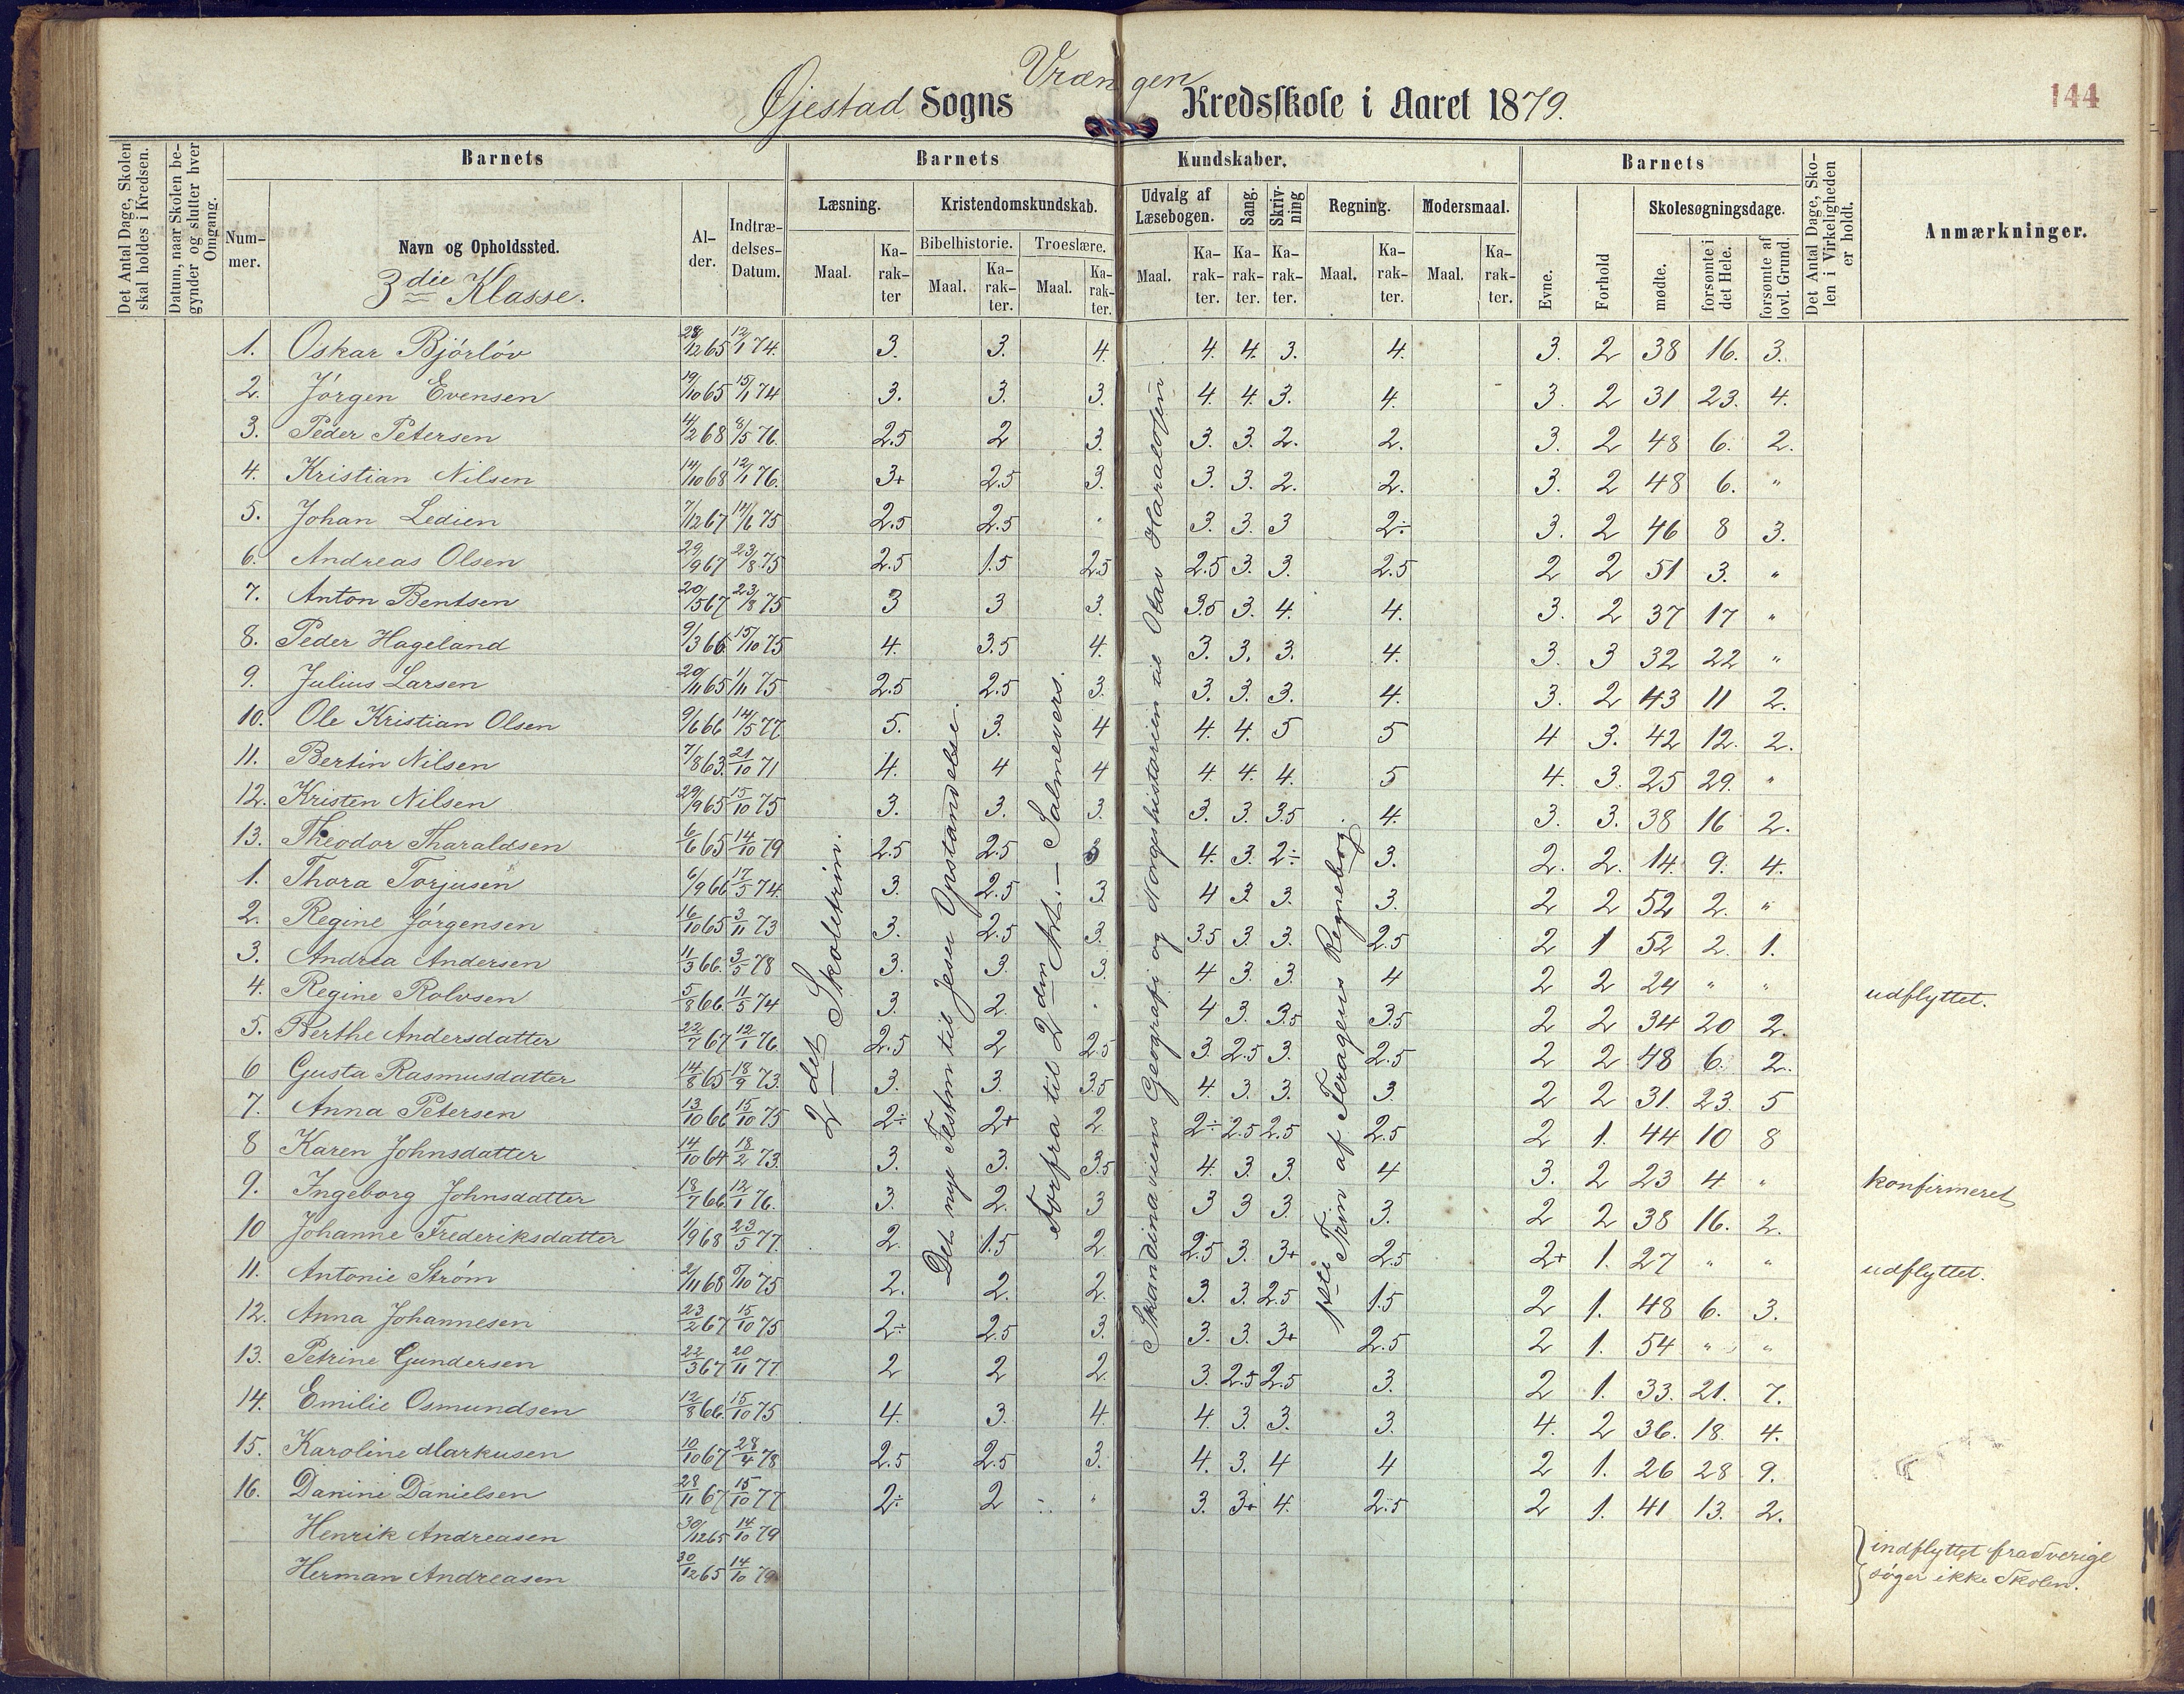 Vrængen
Øjestad Sogns Kredsskole i Aaret 1879.
144
Det Antal Dage, Skolen skal holdes i Kredsen.
Datum, naar Skolen begynder og slutter hver Omgang.
Barnets
Barnets Kundskaber.
Barnets
Det Antal Dage, Skolen i Virkeligheden er holdt.
Anmærkninger.
Nummer.
Navn og Opholdssted.
Alder.
Indtrædelses-Datum.
Læsning.
Kristendomskundskab.
Bibelhistorie.
Troeslære.
Udvalg af Læsebogen.
Sang.
Skrivning
Regning.
Modersmaal.
Evne.
Forhold
Skolesøgningsdage.
mødte.
forsømte i det Hele.
forsømte af lovl. Grund.
Maal. Karakter Maal. Karakter. Maal. Karakter. Maal. Karakter. Karakter. Karakter. Maal. Karakter. Maal. Karakter.
3die Klasse.
1. Oskar Bjórlóv 28/12 65 12/1 74. 3. 3. 4. 4. 4. 3. 4. 3. 2 38 16. 3.
2. Jórgen Evensen 19/10 65 15/1 74 3. 3. 3. 4. 4. 3. 4. 3. 2 31 23. 4.
3. Peder Petersen 14/2 68 8/5 76. 2.5 2 3. 3. 3. 2. 2. 3. 2 48 6. 2.
4. Kristian Nilsen 14/10 68 12/1 76. 3+ 2.5 3. 3. 3. 2. 2. 3. 2 48 6. "
5. Johan Ledien 7/12 67 14/6 75 2.5 2.5 " 3. 3. 3 2÷ 3. 2 46 8 3.
6. Andreas Olsen 29/9 67 23/8 75 2.5 1.5 2.5 2.5 3. 3. 2.5 2 2 51 3. "
7. Anton Bentsen 20/5 67 23/8 75 3 3 3. 3.5 3. 4. 4. 3. 2 37 17 "
8. Peder Hageland 9/3 66 15/10 75 4. 3.5 4. 3. 3. 3. 4. 3. 3 32 22 "
9. Julius Larsen 20/11 65 1/11 75 2.5 2.5 3. 3. 3. 3. 4. 3. 2 43 11 2.
10. Ole Kristian Olsen 9/6 66 14/5 77 5. 3. 4 4. 4. 5 5 4 3. 42 12. 2.
11. Bertin Nilsen 7/8 63. 21/10 71 4. 4 4 4. 4. 4. 5 4. 3. 25 29. "
12. Kristen Nilsen 29/9 65 15/10 75 3. 3. 3. 3. 3. 3.5 4. 3. 3. 38 16 2.
13. Theodor Tharaldsen 6/6 65 14/10 79 2.5 2.5 3 4. 3. 2÷ 3. 2. 2. 14. 9. 4.
1. Thora Torjusen 6/9 66 17/5 74. 3. 2.5 3. 4 3. 3. 3. 2 2 52 2. "
2. Regine Jórgensen 16/10 65 3/11 73 3. 2.5 3. 3.5 3. 3. 2.5 2 1 52 2. 1.
3. Andrea Andersen 11/3 66. 3/5 78 3. 3. 3. 4 3. 3. 4 2 2 24 " "
udflyttet.
4. Regine Rolvsen 5/8 66 11/5 74 3. 2. " 4 3. 3.5 3.5 2 2 34 20 2.
5. Berthe Andersdatter 22/7 67 12/1 76. 2.5 2 2.5 3. 2.5 3. 2.5 2 2 48 6. 2.
6 Gusta Rasmusdatter 14/8 65 18/9 73. 3. 3. 3.5 4. 3. 3. 3. 2 2 31. 23. 5
7. Anna Petersen 13/10 66 15/10 75 2÷ 2+ 2 2÷ 2.5 2.5 2.5 2 1. 44 10 8
8 Karen Johnsdatter 14/10 64 18/2 73. 3. 3. 3.5 4. 3. 3. 4 3. 2 23 4 "
konfirmeret
9. Ingeborg Johnsdatter 18/7 66 12/1 76. 3. 2. 3 3 3 3. 3. 2 2 38 16. 2.
10 Johanne Frederiksdatter 1/9 68 23/5 77. 2. 1.5 2 2.5 3. 3+ 2.5 2+ 1. 27 " "
udflyttet.
11. Antonie Strøm 2/11 68 5/10 75 2. 2. 2. 3. 3. 2.5 1.5 2 1. 48 6. 3.
12. Anna Johannesen 23/2 67 15/10 75 2÷ 2.5 3. 3. 3. 3+ 2.5 2 1. 54 " "
13. Petrine Gundersen 22/3 67 20/11 77 2 2 2. 3. 2.5 2.5 3. 2 1. 33. 21. 7.
14. Emilie Osmundsen 12/8 66. 15/10 75 4. 3. 4. 4. 3. 3. 3. 4. 2 36. 18. 4.
15. Karoline Markusen 10/10 67 28/4 78 2.5 2.5 3. 4. 3. 4 4 2 1. 26 28 9.
16. Danine Danielsen 28/11 67 15/10 77 2÷ 2 " 3. 3+ 4. 2.5 2 1. 41 13. 2.
Henrik Andreasen 30/12 65 14/10 79
Herman Andreasen 30/12 65 14/10 79
indflyttet fra Sverige
søger ikke Skolen.
2det Skoletrin.
Det nye Testm til Jesu Opstandelse.
Forfra til 2den Art. – Salmevers.
Skandinaviens Geografi og Norgeshistorien til Olav Haraldsen.
1ste Trin af Feragens Regnebog